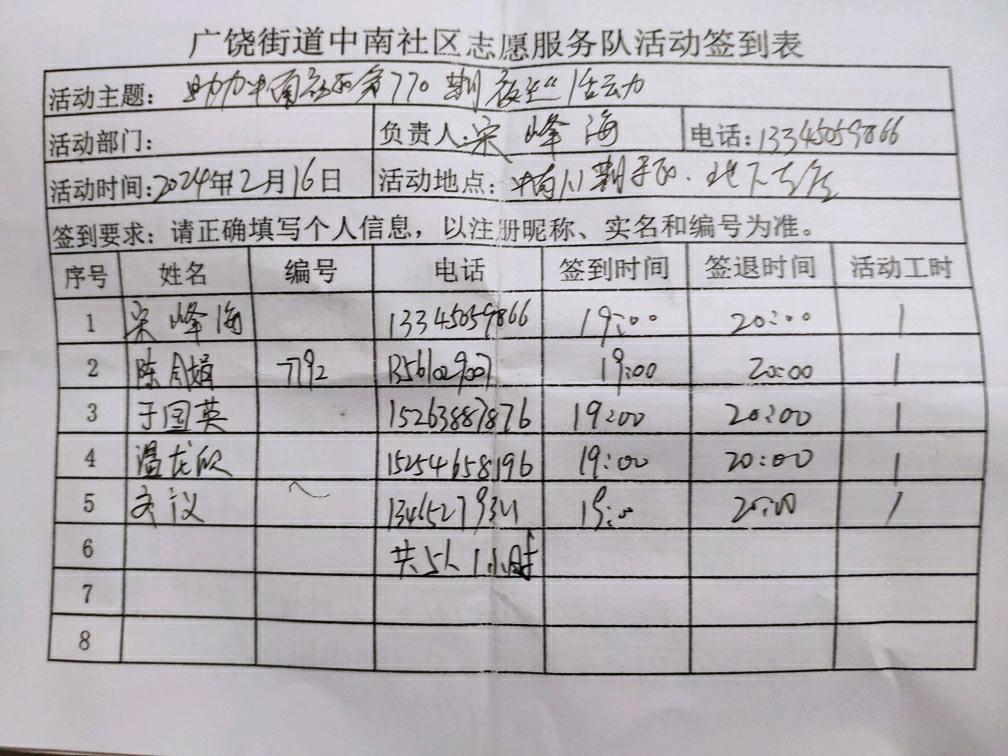 广饶街道中南社区志愿服务队活动签到表
活动主题: 助力中南社区第770期夜巡活动
活动部门:
负责人: 宋峰海
电话: 13345059866
活动时间: 2024年2月16日
活动地点: 中南
签到要求: 请正确填写个人信息，以注册昵称、实名和编号为准。
序号 姓名 编号 电话 签到时间 签退时间 活动工时
1 宋峰海 13345059866 19:00 20:00 1
2 陈月娟 7792 13561029007 19:00 20:00 1
3 于国英 15263887876 19:00 20:00 1
4 温龙欣 15254658196 19:00 20:00 1
5 19:00 20:00 1
6 共5人1小时
7
8